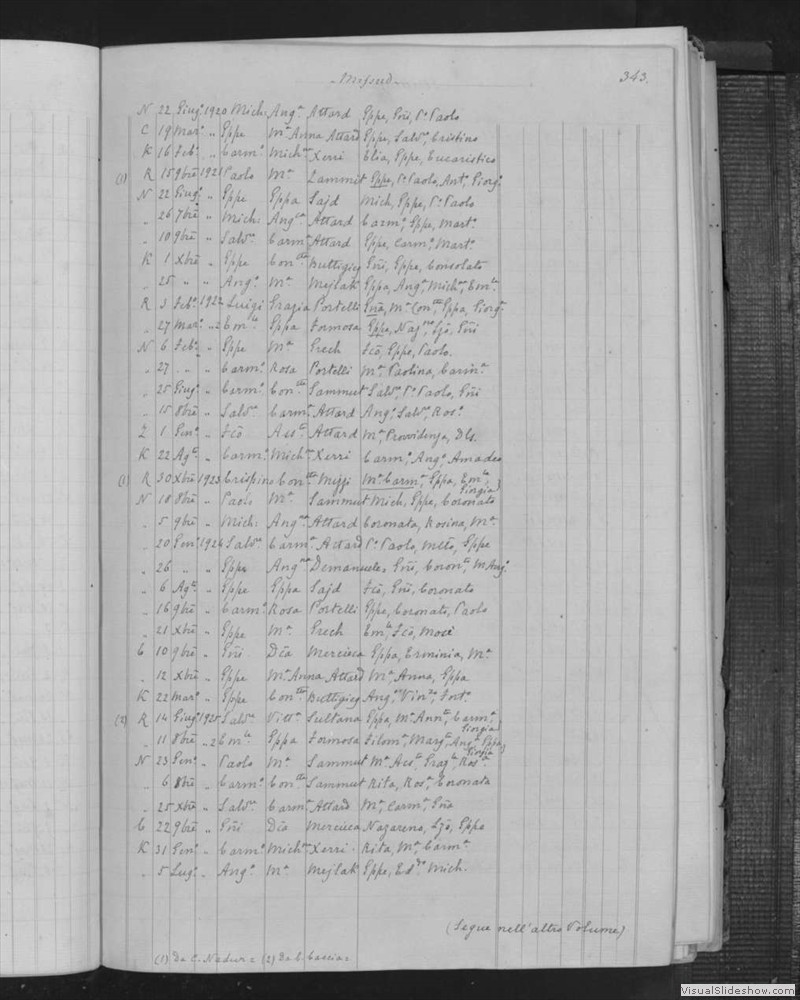 - Mifsud - 343.
N 22 Giugº 1920 Mich: Angª Attard Gppe, Gñi, Pº Paolo
C 19 Marº " Gppe Mª Anna Attard Gppe, Salvº, Cristino
K 16 Febº " Carmº Michna Xerri Elia, Gppe, Eucaristico
(1) R 15 9bre 1921 Paolo Mª Zammit Gppe, Pº Paolo, Antº, Giorgº
N 22 Giugº " Gppe Gppa Sajd Mich, Gppe, Pº Paolo
" 26 7bre " Mich: Angca Attard Carmº, Gppe, Martº
" 10 9bre " Salvre Carmª Attard Gppe, Carmº, Martº
K 1 Xbre " Gppe Contta Buttigieg Gñi, Gppe, Consolato
" 25 " " Angº Mª Mejlak Gppa, Angª, Michna, Emla
R 3 Febº 1922 Luigi Grazia Portelli Gña, Mª Contta, Gppa, Giorgª
" 27 Marº " 2 Emle Gppa Formosa Gppe, Nazno, Fcõ, Gñi
N 6 Febº " Gppe Mª Grech Fcõ, Gppe, Paolo
" 27 " " Carmº Rosa Portelli Mª Paolina, Carmª
" 25 Giugº " Carmº Contta Sammut Salvre, Pº Paolo, Gñi
" 15 8bre " Salvre Carmª Attard Angº, Salvº, Rosº
Z 1 Genº " Fcõ Assta Attard Mª, Provvidenza, Dls.
K 22 Agto " Carmº Michna Xerri Carmº, Angº, Amadeo
(1) R 30 Xbre 1923 Crispino Contta Mizzi Mª Carmª, Gppa, Emla, Giorgia)
N 18 8bre " Paolo Mª Sammut Mich, Gppe, Coronato
" 5 9bre " Mich: Angca Attard Coronata, Rosina, Mª
" 20 Genº 1924 Salvre Carmª Attard Pº Paolo, Mttõ, Gppe
" 26 " " Gppe Angca Demanuele Gñi, Coronto, M. Angº
" 6 Agto " Gppe Gppa Sajd Fcõ, Gñi, Coronato
" 16 9bre " Carmº Rosa Portelli Gppe, Coronato, Paolo
" 21 Xbre " Gppe Mª Grech Emle, Fcõ, Mosè
C 10 9bre " Gñi Dca Mercieca Gppa, Erminia, Mª
" 12 Xbre " Gppe Mª Anna Attard Mª Anna, Gppa
K 22 Marº " Gppe Contta Buttigieg
(2) R 14 Giugº 1925 Salvre Vittª Sultana Gppa, Mª Annta, Carmª, Giorgia)
" 11 8bre " 2 Emle Gppa Formosa Filomª, Margª, Angª, Gppa, Giorgia)
N 23 Genº " Paolo Mª Sammut Mª Assta
" 6 8bre " Carmº Contta Sammut Rita, Rosª, Coronata
" 25 Xbre " Salvre Carmª Attard Mª, Carmª, Gña
C 22 9bre " Gñi Dca Mercieca Nazareno, Gppe
K 31 Genº " Carmº Michna Xerri Rita, Mª Carmª
" 5 Lugº " Angº Mª Mejlak Gppe, Eddo, Mich.
(Segue nell'altro Volume)
(1) Da C. Nadur = (2) Da C. Caccia =
VisualSlideshow.com